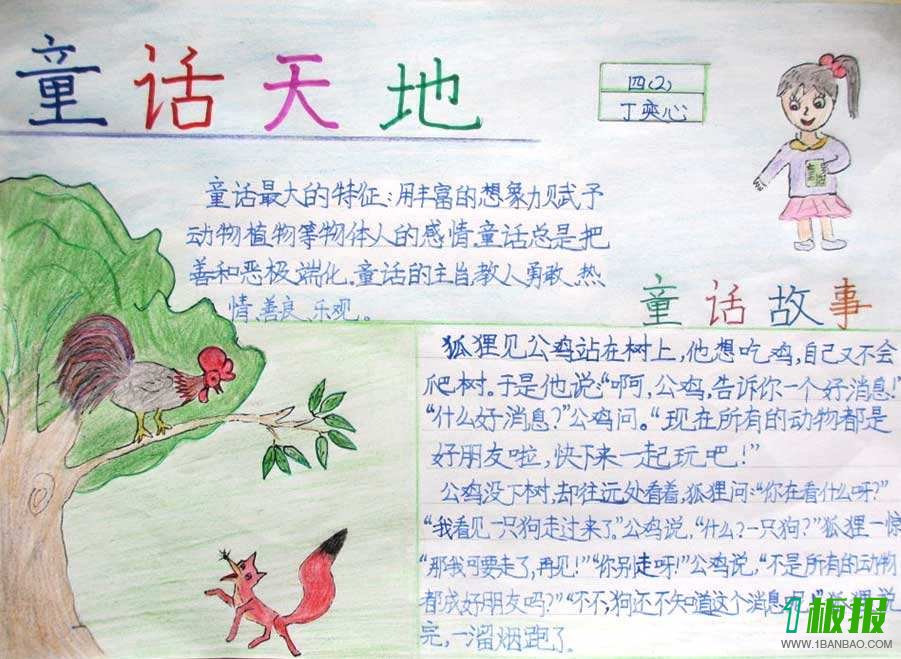 童话天地
四(2)
丁奕心
童话最大的特征:用丰富的想象力赋予
动物植物等物体人的感情.童话总是把
善和恶极端化.童话的主旨教人勇敢、热
情、善良、乐观。
童话故事
狐狸见公鸡站在树上,他想吃鸡,自己又不会
爬树.于是他说:“啊,公鸡,告诉你一个好消息!”
“什么好消息?”公鸡问.“现在所有的动物都是
好朋友啦,快下来一起玩吧!”
公鸡没下树,却往远处看着,狐狸问:“你在看什么呀?”
“我看见一只狗走过来了.”公鸡说,“什么?一只狗?”狐狸一惊
“那我可要走了,再见!”“你别走呀!”公鸡说,“不是所有的动物
都成好朋友吗?”“不,不,狗还不知道这个消息 狐狸说
完,一溜烟跑了.
1板报
WWW.1BANBAO.COM